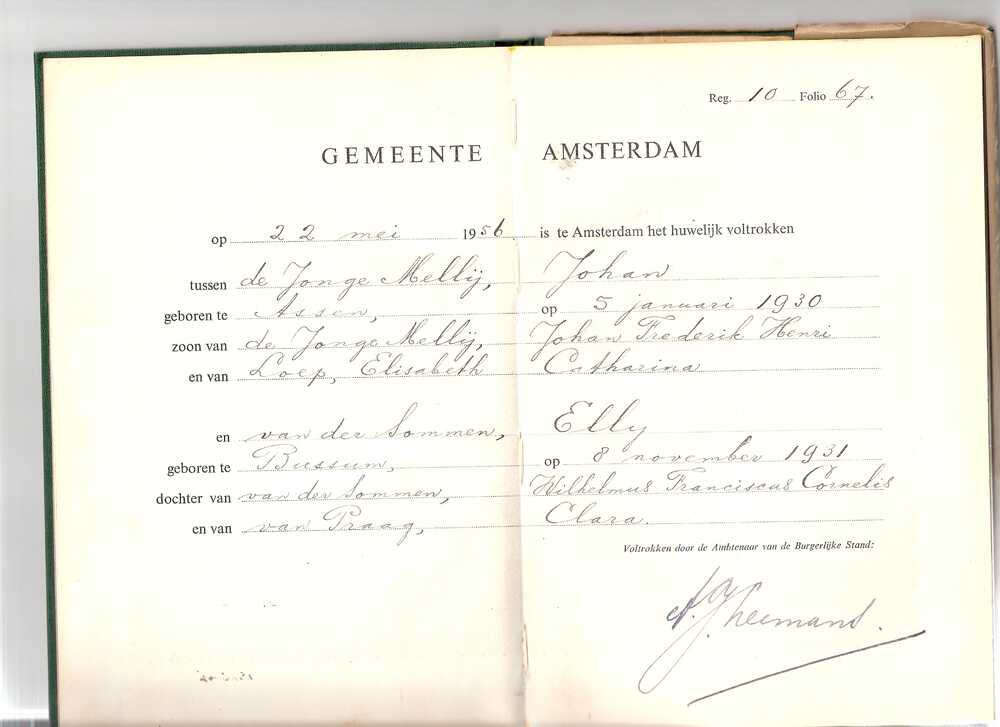 Reg. 10 Folio 67.
GEMEENTE AMSTERDAM
op 22 mei 1956 is te Amsterdam het huwelijk voltrokken
tussen de Jonge Mellij, Johan
geboren te Assen, op 5 januari 1930
zoon van de Jonge Mellij, Johan Frederik Henri
en van Loep, Elisabeth Catharina
en van der Sommen, Elly
geboren te Bussum, op 8 november 1931
dochter van van der Sommen, Wilhelmus Franciscus Cornelis
en van van Praag, Clara.
Voltrokken door de Ambtenaar van de Burgerlijke Stand: